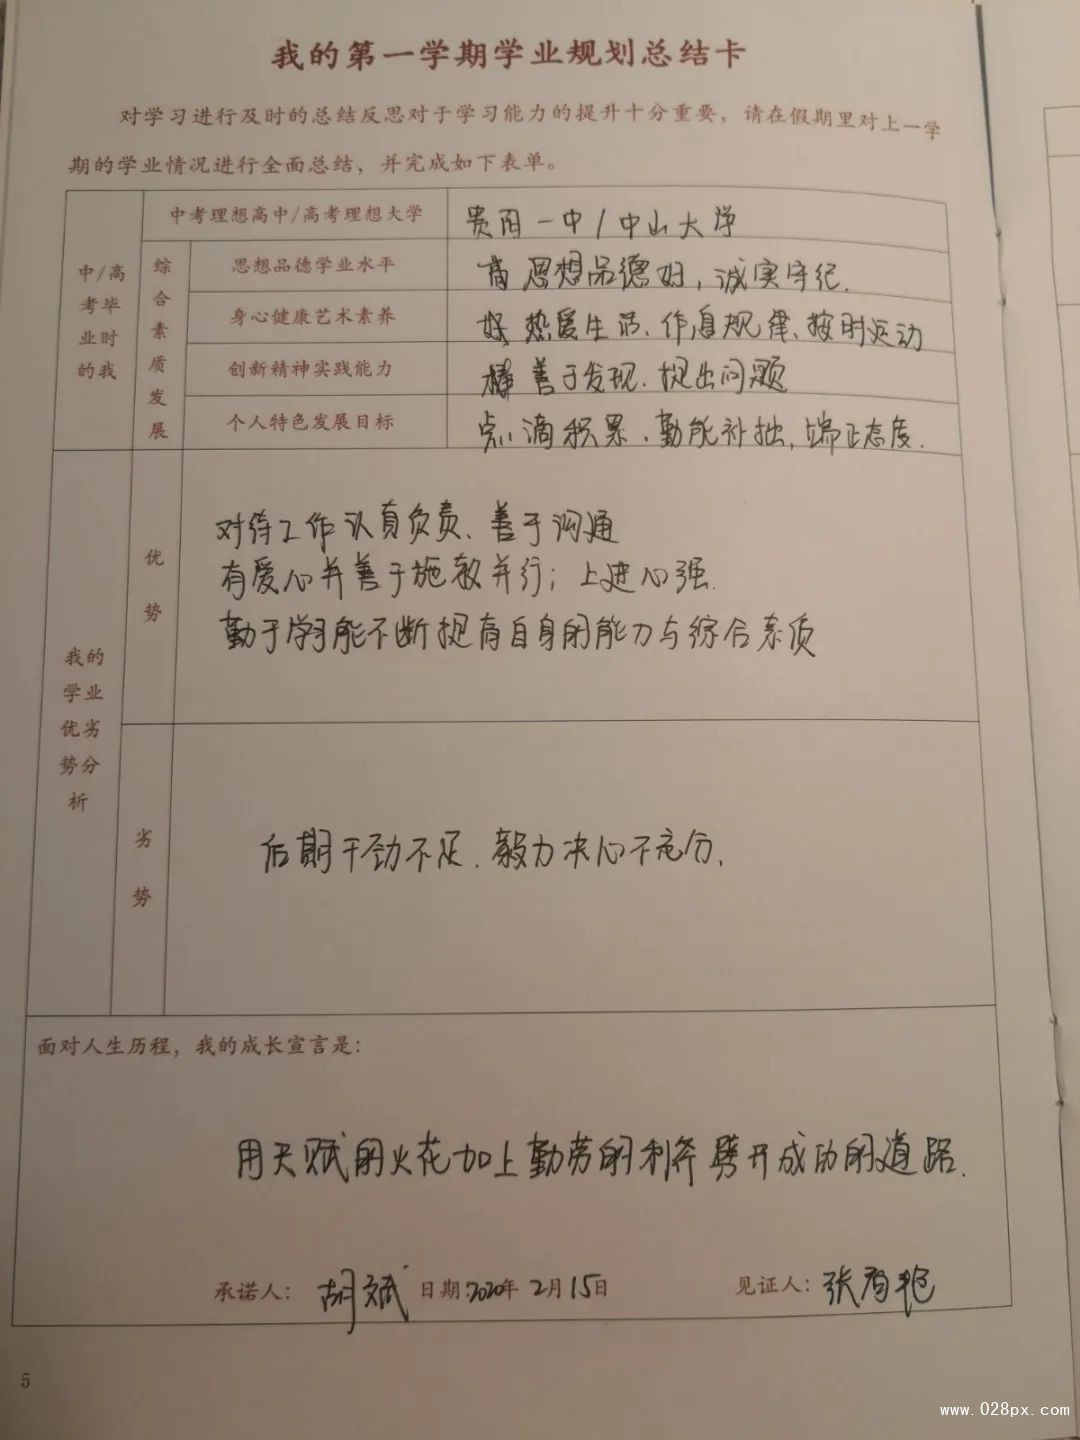 我的第一学期学业规划总结卡
对学习进行及时的总结反思对于学习能力的提升十分重要，请在假期里对上一学
期的学业情况进行全面总结，并完成如下表单。
中/高
考毕
业时
的我
中考理想高中/高考理想大学
贵阳一中/中山大学
综
合
素
质
发
展
思想品德学业水平
高 思想品德好，诚实守纪.
身心健康艺术素养
好 热爱生活、作息规律、按时运动
创新精神实践能力
棒 善于发现.提出问题
个人特色发展目标
点滴积累、勤能补拙，端正态度.
我的
学业
优劣
势分
析
优
势
对待工作认真负责、善于沟通
有爱心并善于施教并行；上进心强.
勤于学习能不断提高自身的能力与综合素质
劣
势
后期干劲不足.毅力决心不充分.
面对人生历程，我的成长宣言是：
用天赋的火花加上勤劳的利斧劈开成功的道路.
承诺人：胡斌 日期：2020年2月15日 见证人：张
5
www.028px.com